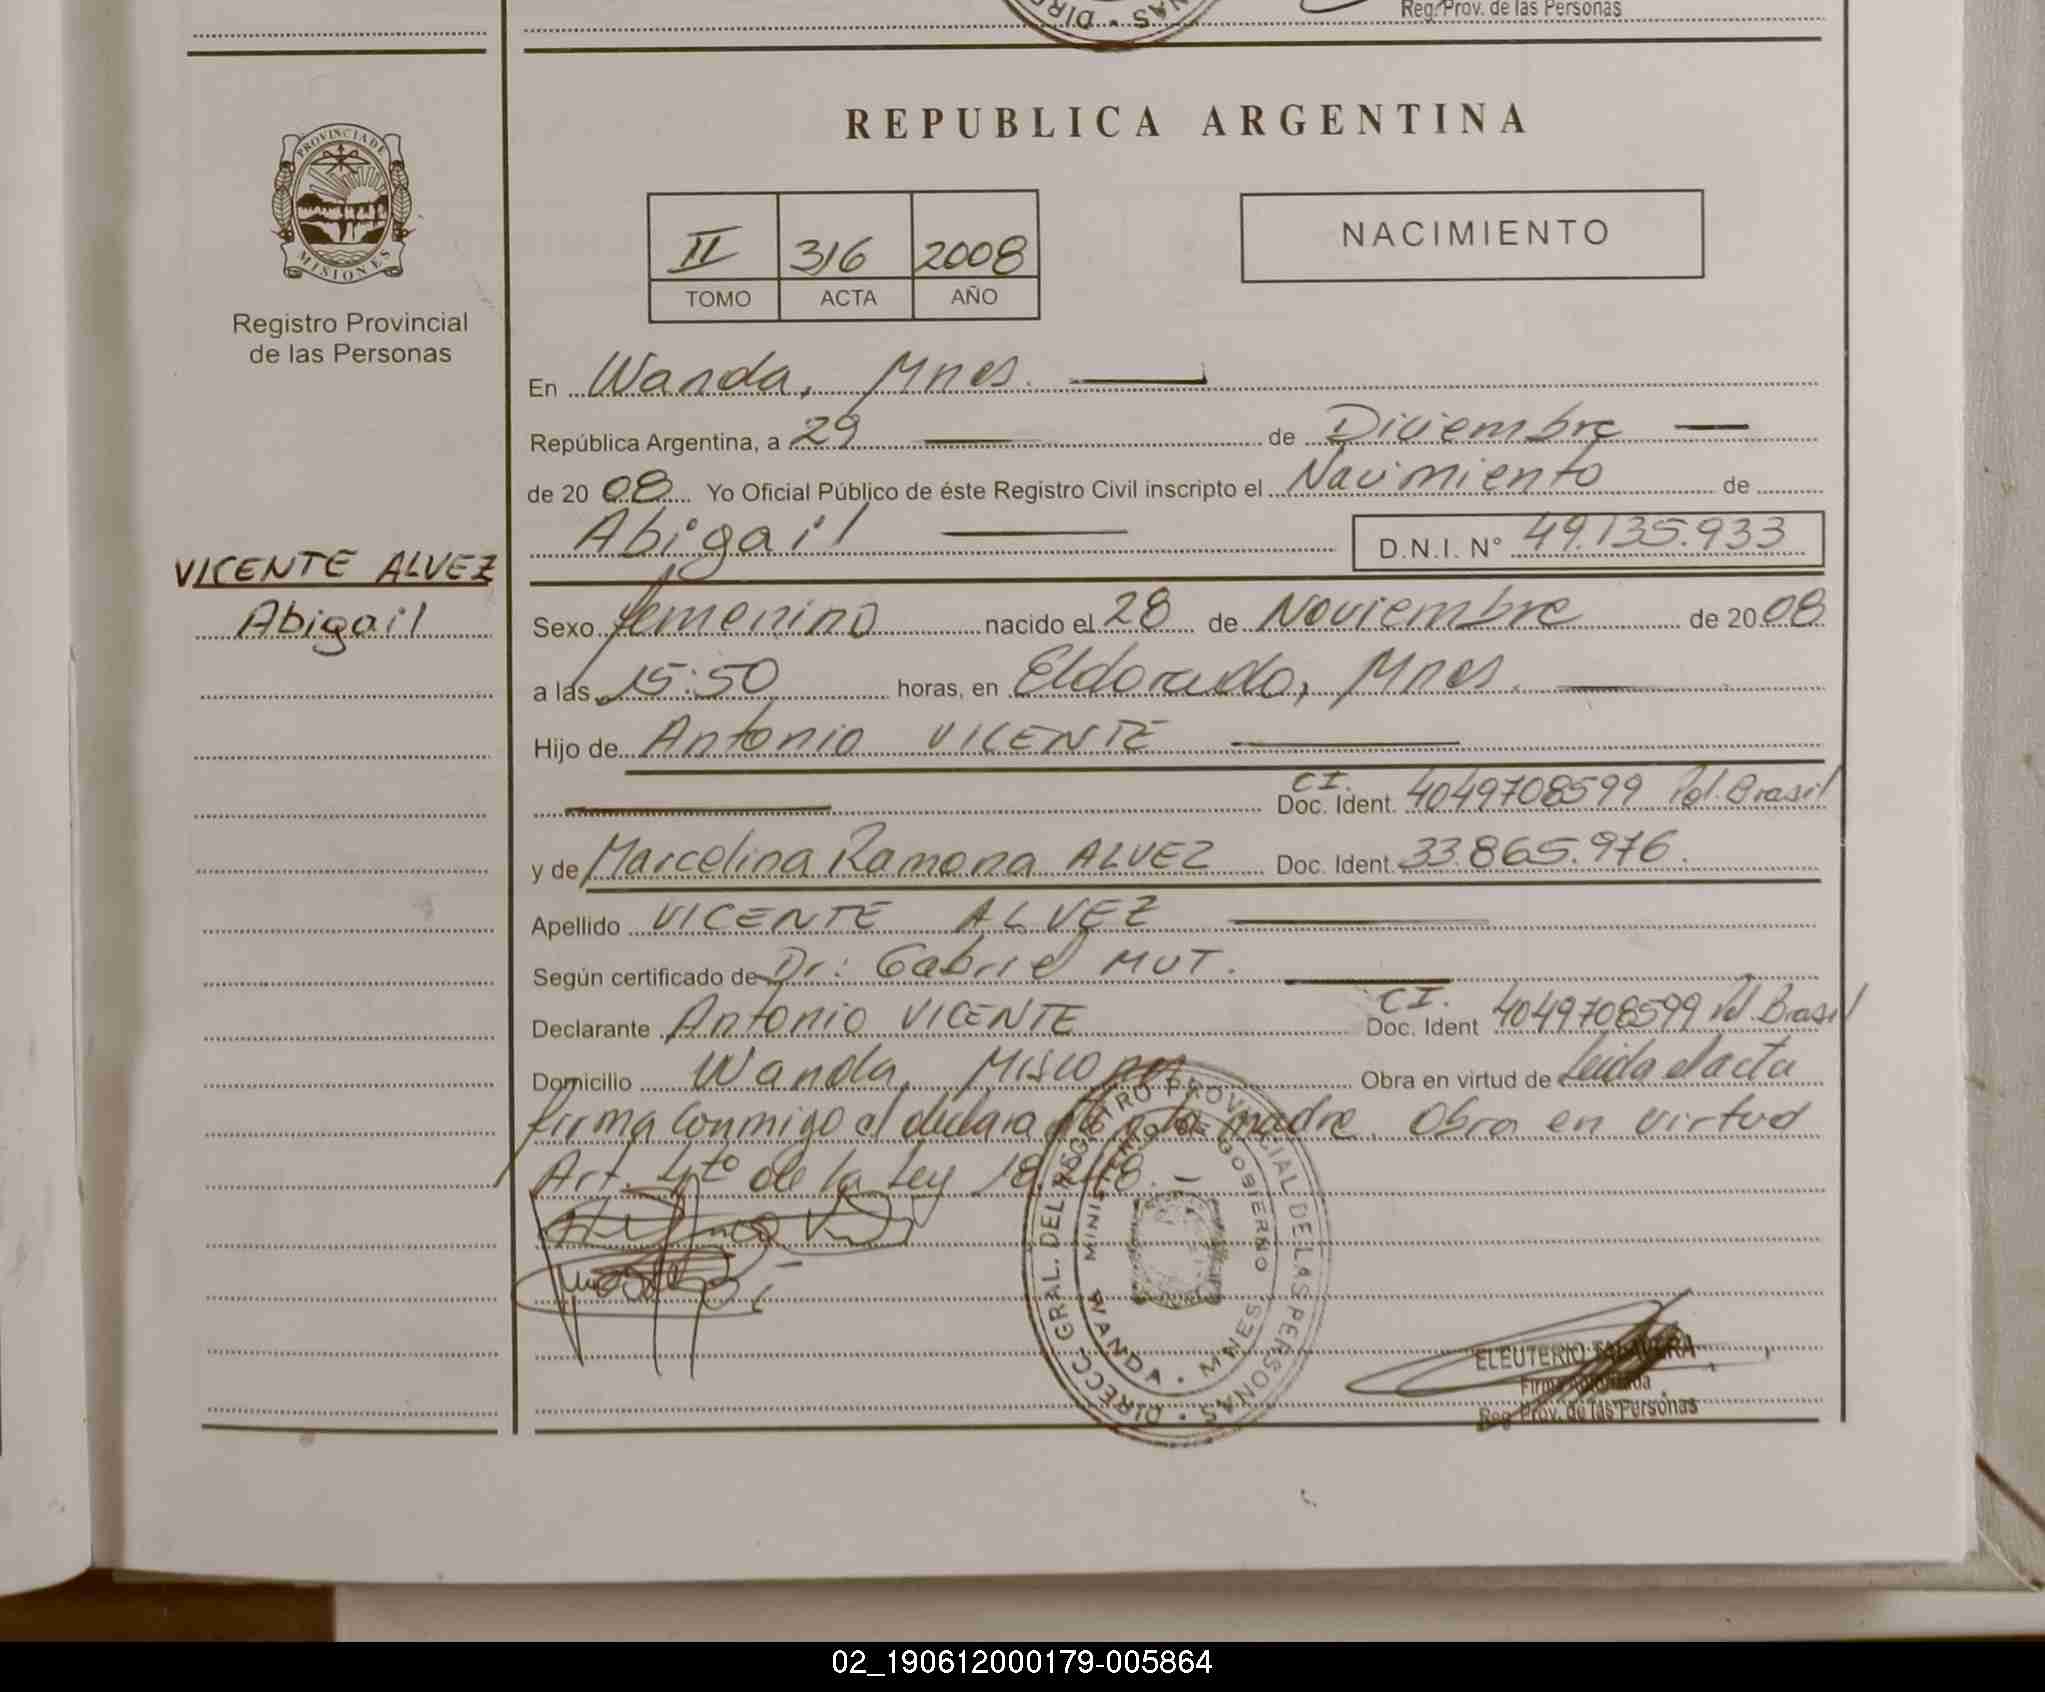 Reg. Prov. de las Personas
REPUBLICA ARGENTINA
PROVINCIA DE
MISIONES
Registro Provincial
de las Personas
II 316 2008
TOMO ACTA AÑO
NACIMIENTO
En Wanda, Mnes.
República Argentina, a 29 de Diciembre
de 20 08 Yo Oficial Público de éste Registro Civil inscripto el Nacimiento de
Abigail D.N.I. Nº 49.135.933
VICENTE ALVEZ
Abigail
Sexo femenino nacido el 28 de Noviembre de 20 08
a las 15:50 horas, en Eldorado, Mnes.
Hijo de Antonio VICENTE
CI.
Doc. Ident. 4049708599 Pol. Brasil
y de Marcelina Ramona ALVEZ Doc. Ident. 33.865.976.
Apellido VICENTE ALVEZ
Según certificado de Dr: Gabriel MUT.
CI.
Declarante Antonio VICENTE Doc. Ident 4049708599 Pol. Brasil
Domicilio Wanda, Misiones Obra en virtud de Leida el acta
firma conmigo el declarante y la madre. Obra en virtud
Art. 4to de la Ley 18.248.
DIRECC. GRAL. DEL REGISTRO PROVINCIAL DE LAS PERSONAS
MINISTERIO DE GOBIERNO
WANDA - MNES
ELEUTERIO TALAVERA
Firma Autorizada
Reg. Prov. de las Personas
02_190612000179-005864